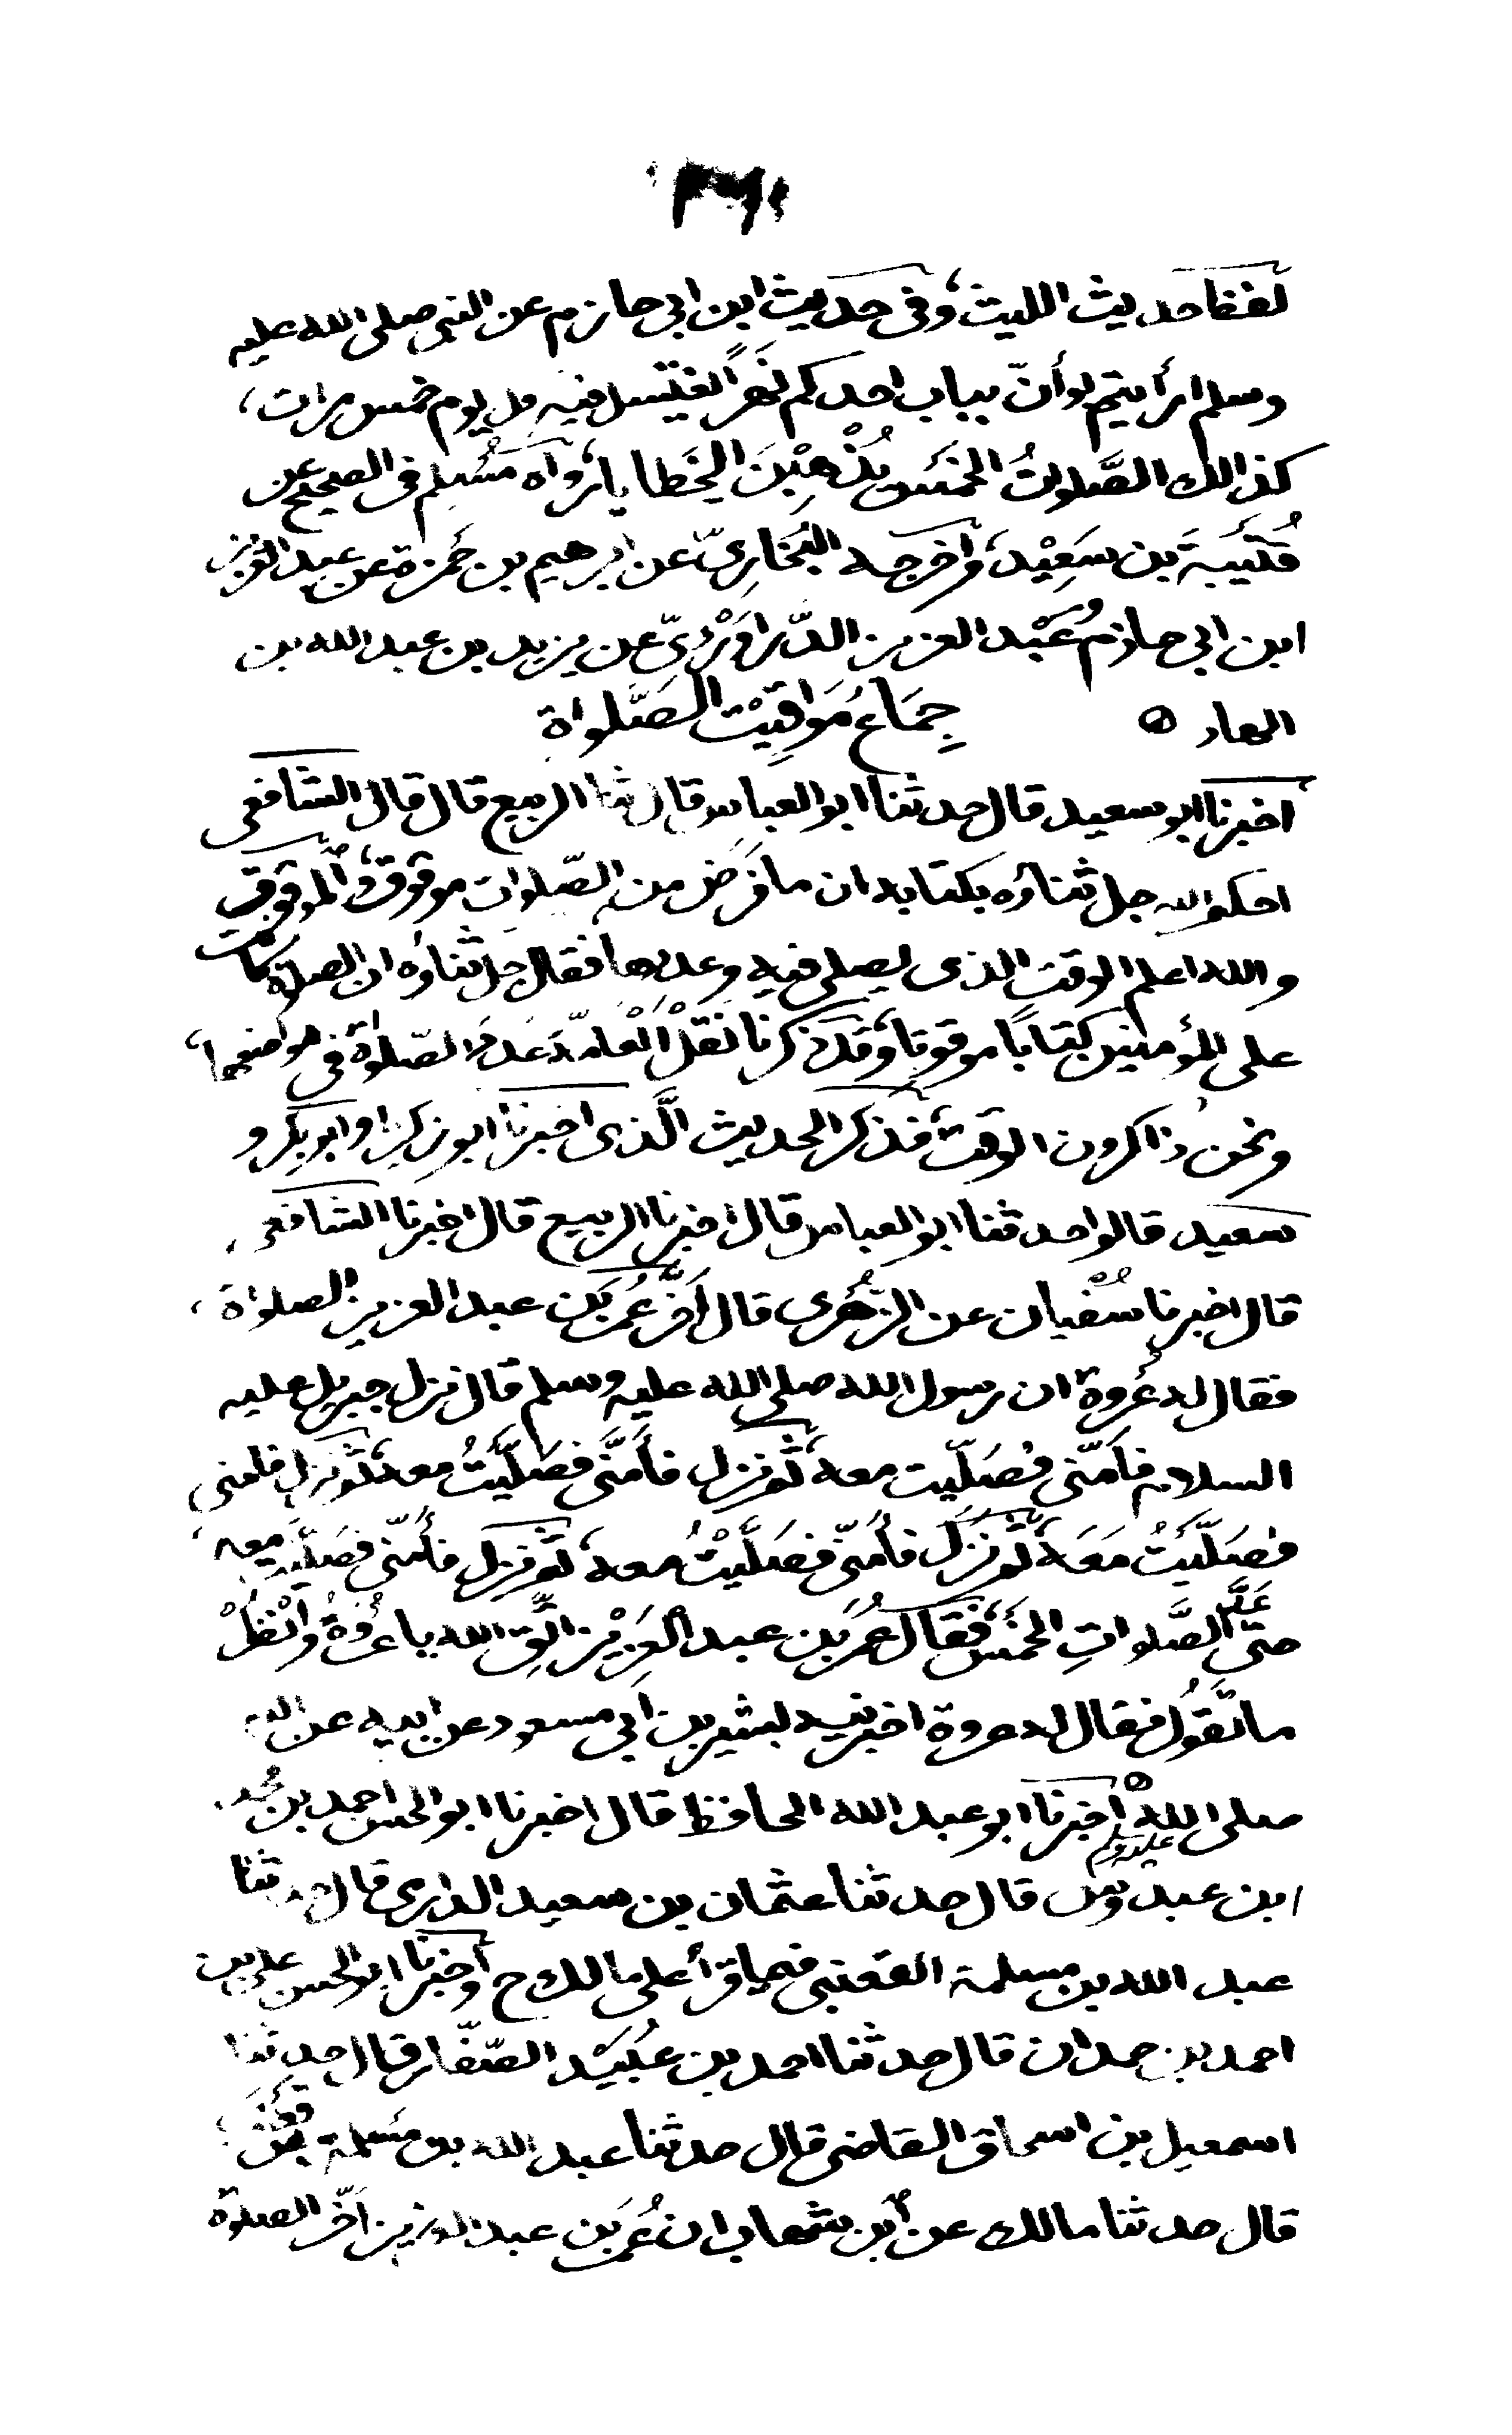 لفظ حديث الليث، وفى حديث ابن ابى حازم عن النبى صلى الله عليه
وسلم ارأيتم لو أنّ بباب احدكم نهراً يغتسل فيه كل يوم خمس مرات،
كذالك الصَّلوتُ الخمسُ يُذْهِبْنَ الخَطايا، رواه مُسْلِم فى الصحيح عن
قُتَيْبَةَ بن سَعِيْد، وأخرجه البُخارىّ عن ابرهيم بن حَمْزة عن عبد العزيز
ابن ابى حازم وعَبْد العزيز الدّراوَرْدىّ عن يزيد بن عبد الله بن
الهاد ه جِمَاعُ مَوَاقِيْت الصَّلواة
اخبرنا ابو سعيد قال حدثنا ابو العباس قال ثنا الربيع قال قال الشافعى
احكم الله جل ثناؤه بكتابه ان ما فَرَض من الصّلوات موقوت، والموقوت
والله اعلم الوقت الذى يصلى فيه وعددها فقال جل ثناؤه ان الصلوة كانت
على المؤمنين كتابًا موقوتا، وقد ذكرنا نَقْلَ العامّة عَدَدَ الصّلوٰة فى مواضعها،
ونحن ذاكرون الوقت، فذكر الحديث الَّذى اخبرنا ابو زكريا وابو بكر و
سعيد قالوا حدثنا ابو العباس قال اخبرنا الربيع قال اخبرنا الشافعى،
قال اخبرنا سُفْيان عن الزُّهرى قال أخَّرَ عُمَر بَن عبد العزيز الصلواة،
فقال له عُروة ان رسول الله صلى الله عليه وسلم قال نزل جبريل عليه
السلام فأمّنى فصَلّيت معه، ثم نزل فأَمَّنى فصَلَّيتُ معه، ثم نزل فامنى
فصَلَّيتُ مَعَه، ثم نزَل فأمّنى فصَلَّيْتُ معه، ثم نزل فأمّنى فصَلّيت معه،
حتى عَدَّ الصَّلواتِ الخمسَ، فقال عُمَر بَن عبد العَزِيْز اتَّقِ الله يا عُرْوَةُ وانْظُرْ
ما تَقُولُ فقال له عروة اخبرنيه بشير بن ابى مسعود عن ابيه عن النبى
صلى الله عليه وسلم ه اخبرنا ابو عبد الله الحافظ قال اخبرنا ابو الحسن احمد بن محمد
ابن عبدوس قال حدثنا عثمان بن سعيد الدارمى قال حدثنا
عبد الله بن مسلمة القعنبى فيما قرأ على مالك ح واخبرنا ابو الحسن على بن
احمد بن حمدان قال حدثنا احمد بن عُبَيْد الصّفّار قال حدثنا
اسمعيل بن اسحاق القاضى قال حدثنا عبد الله بن مَسْلمة
قال حدثنا مالك عن ابن شهاب ان عُمَر بَن عبد العزيز أخّر الصلوة